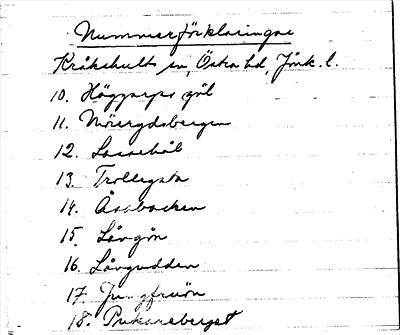 Nummerförklaringar
Kråkshults sn, Östra hd, Jönk. l.
10. Höggarps göl
11. Mörgdsbergen
12. Lassehål
13. Trollegata
14. Åsabacken
15. Långön
16. Långudden
17. Jungfruön
18. Pukareberget